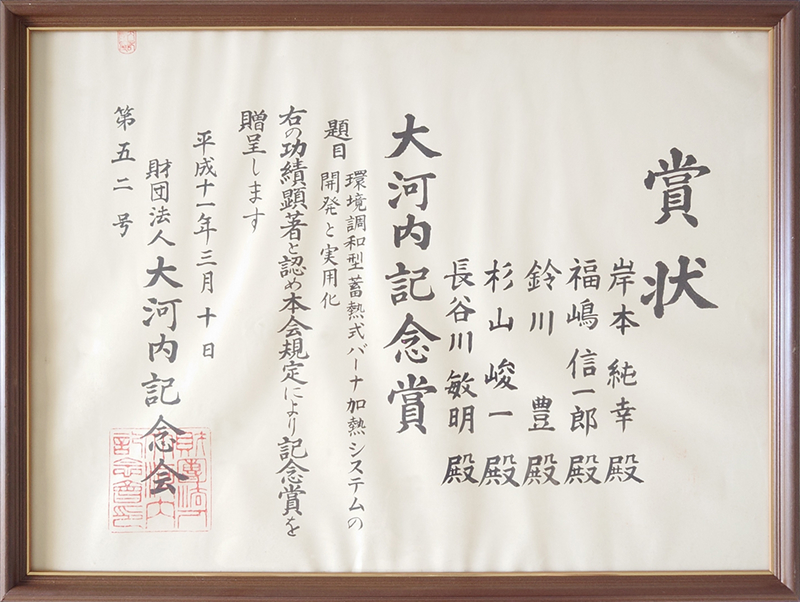 賞状
岸本純幸殿
福嶋信一郎殿
鈴川豊殿
杉山峻一殿
長谷川敏明殿
大河内記念賞
題目 環境調和型蓄熱式バーナ加熱システムの
開発と実用化
右の功績顕著と認め本会規定により記念賞を
贈呈します
平成十一年三月十日
財団法人大河内記念会
第五二号